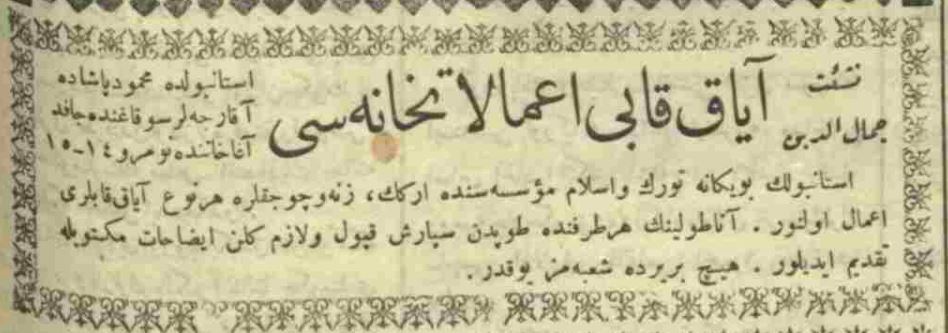 نشئت
جمال الدين
آياق قابى اعمالاتخانه‌سى
استانبولده محمود پاشاده
آقارجه‌لر سوقاغنده
آغا خاننده نومرو ١٤-١٥
استانبولك بويكانه تورك واسلام مؤسسه‌سنده اركك، زنه و چوجقلره هر نوع آياق قابلرى
اعمال اولنور . آناطولينك هر طرفنده طوپدن سپارش قبول ولازم كلن ايضاحات مكتوبله
تقديم ايديلور . هيچ بر يرده شعبه‌مز يوقدر .